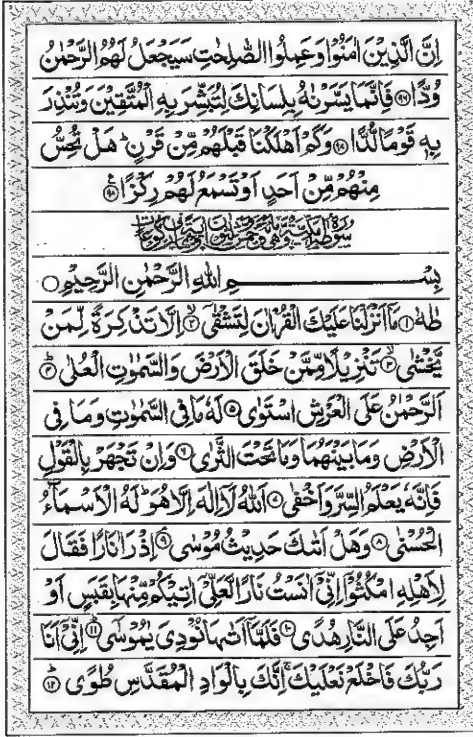 اِنَّ الَّذِيْنَ اٰمَنُوْا وَعَمِلُوا الصّٰلِحٰتِ سَيَجْعَلُ لَهُمُ الرَّحْمٰنُ
وُدًّا ۝۹۶ فَاِنَّمَا يَسَّرْنٰهُ بِلِسَانِكَ لِتُبَشِّرَ بِهِ الْمُتَّقِيْنَ وَتُنْذِرَ
بِهٖ قَوْمًا لُّدًّا ۝۹۷ وَكَمْ اَهْلَكْنَا قَبْلَهُمْ مِّنْ قَرْنٍ ؕ هَلْ تُحِسُّ
مِنْهُمْ مِّنْ اَحَدٍ اَوْ تَسْمَعُ لَهُمْ رِكْزًا ۝۹۸
بِسْمِ اللّٰهِ الرَّحْمٰنِ الرَّحِيْمِ ۝
طٰهٰ ۝۱ مَاۤ اَنْزَلْنَا عَلَيْكَ الْقُرْاٰنَ لِتَشْقٰۤى ۝۲ اِلَّا تَذْكِرَةً لِّمَنْ
يَّخْشٰى ۝۳ تَنْزِيْلًا مِّمَّنْ خَلَقَ الْاَرْضَ وَالسَّمٰوٰتِ الْعُلٰى ۝۴
اَلرَّحْمٰنُ عَلَى الْعَرْشِ اسْتَوٰى ۝۵ لَهٗ مَا فِى السَّمٰوٰتِ وَمَا فِى
الْاَرْضِ وَمَا بَيْنَهُمَا وَمَا تَحْتَ الثَّرٰى ۝۶ وَاِنْ تَجْهَرْ بِالْقَوْلِ
فَاِنَّهٗ يَعْلَمُ السِّرَّ وَاَخْفٰى ۝۷ اَللّٰهُ لَاۤ اِلٰهَ اِلَّا هُوَ ؕ لَهُ الْاَسْمَآءُ
الْحُسْنٰى ۝۸ وَهَلْ اَتٰىكَ حَدِيْثُ مُوْسٰى ۝۹ اِذْ رَاٰ نَارًا فَقَالَ
لِاَهْلِهِ امْكُثُوْۤا اِنِّىْۤ اٰنَسْتُ نَارًا لَّعَلِّىْۤ اٰتِيْكُمْ مِّنْهَا بِقَبَسٍ اَوْ
اَجِدُ عَلَى النَّارِ هُدًى ۝۱۰ فَلَمَّاۤ اَتٰىهَا نُوْدِىَ يٰمُوْسٰى ۝۱۱ اِنِّىْۤ اَنَا
رَبُّكَ فَاخْلَعْ نَعْلَيْكَ ۚ اِنَّكَ بِالْوَادِ الْمُقَدَّسِ طُوًى ۝۱۲